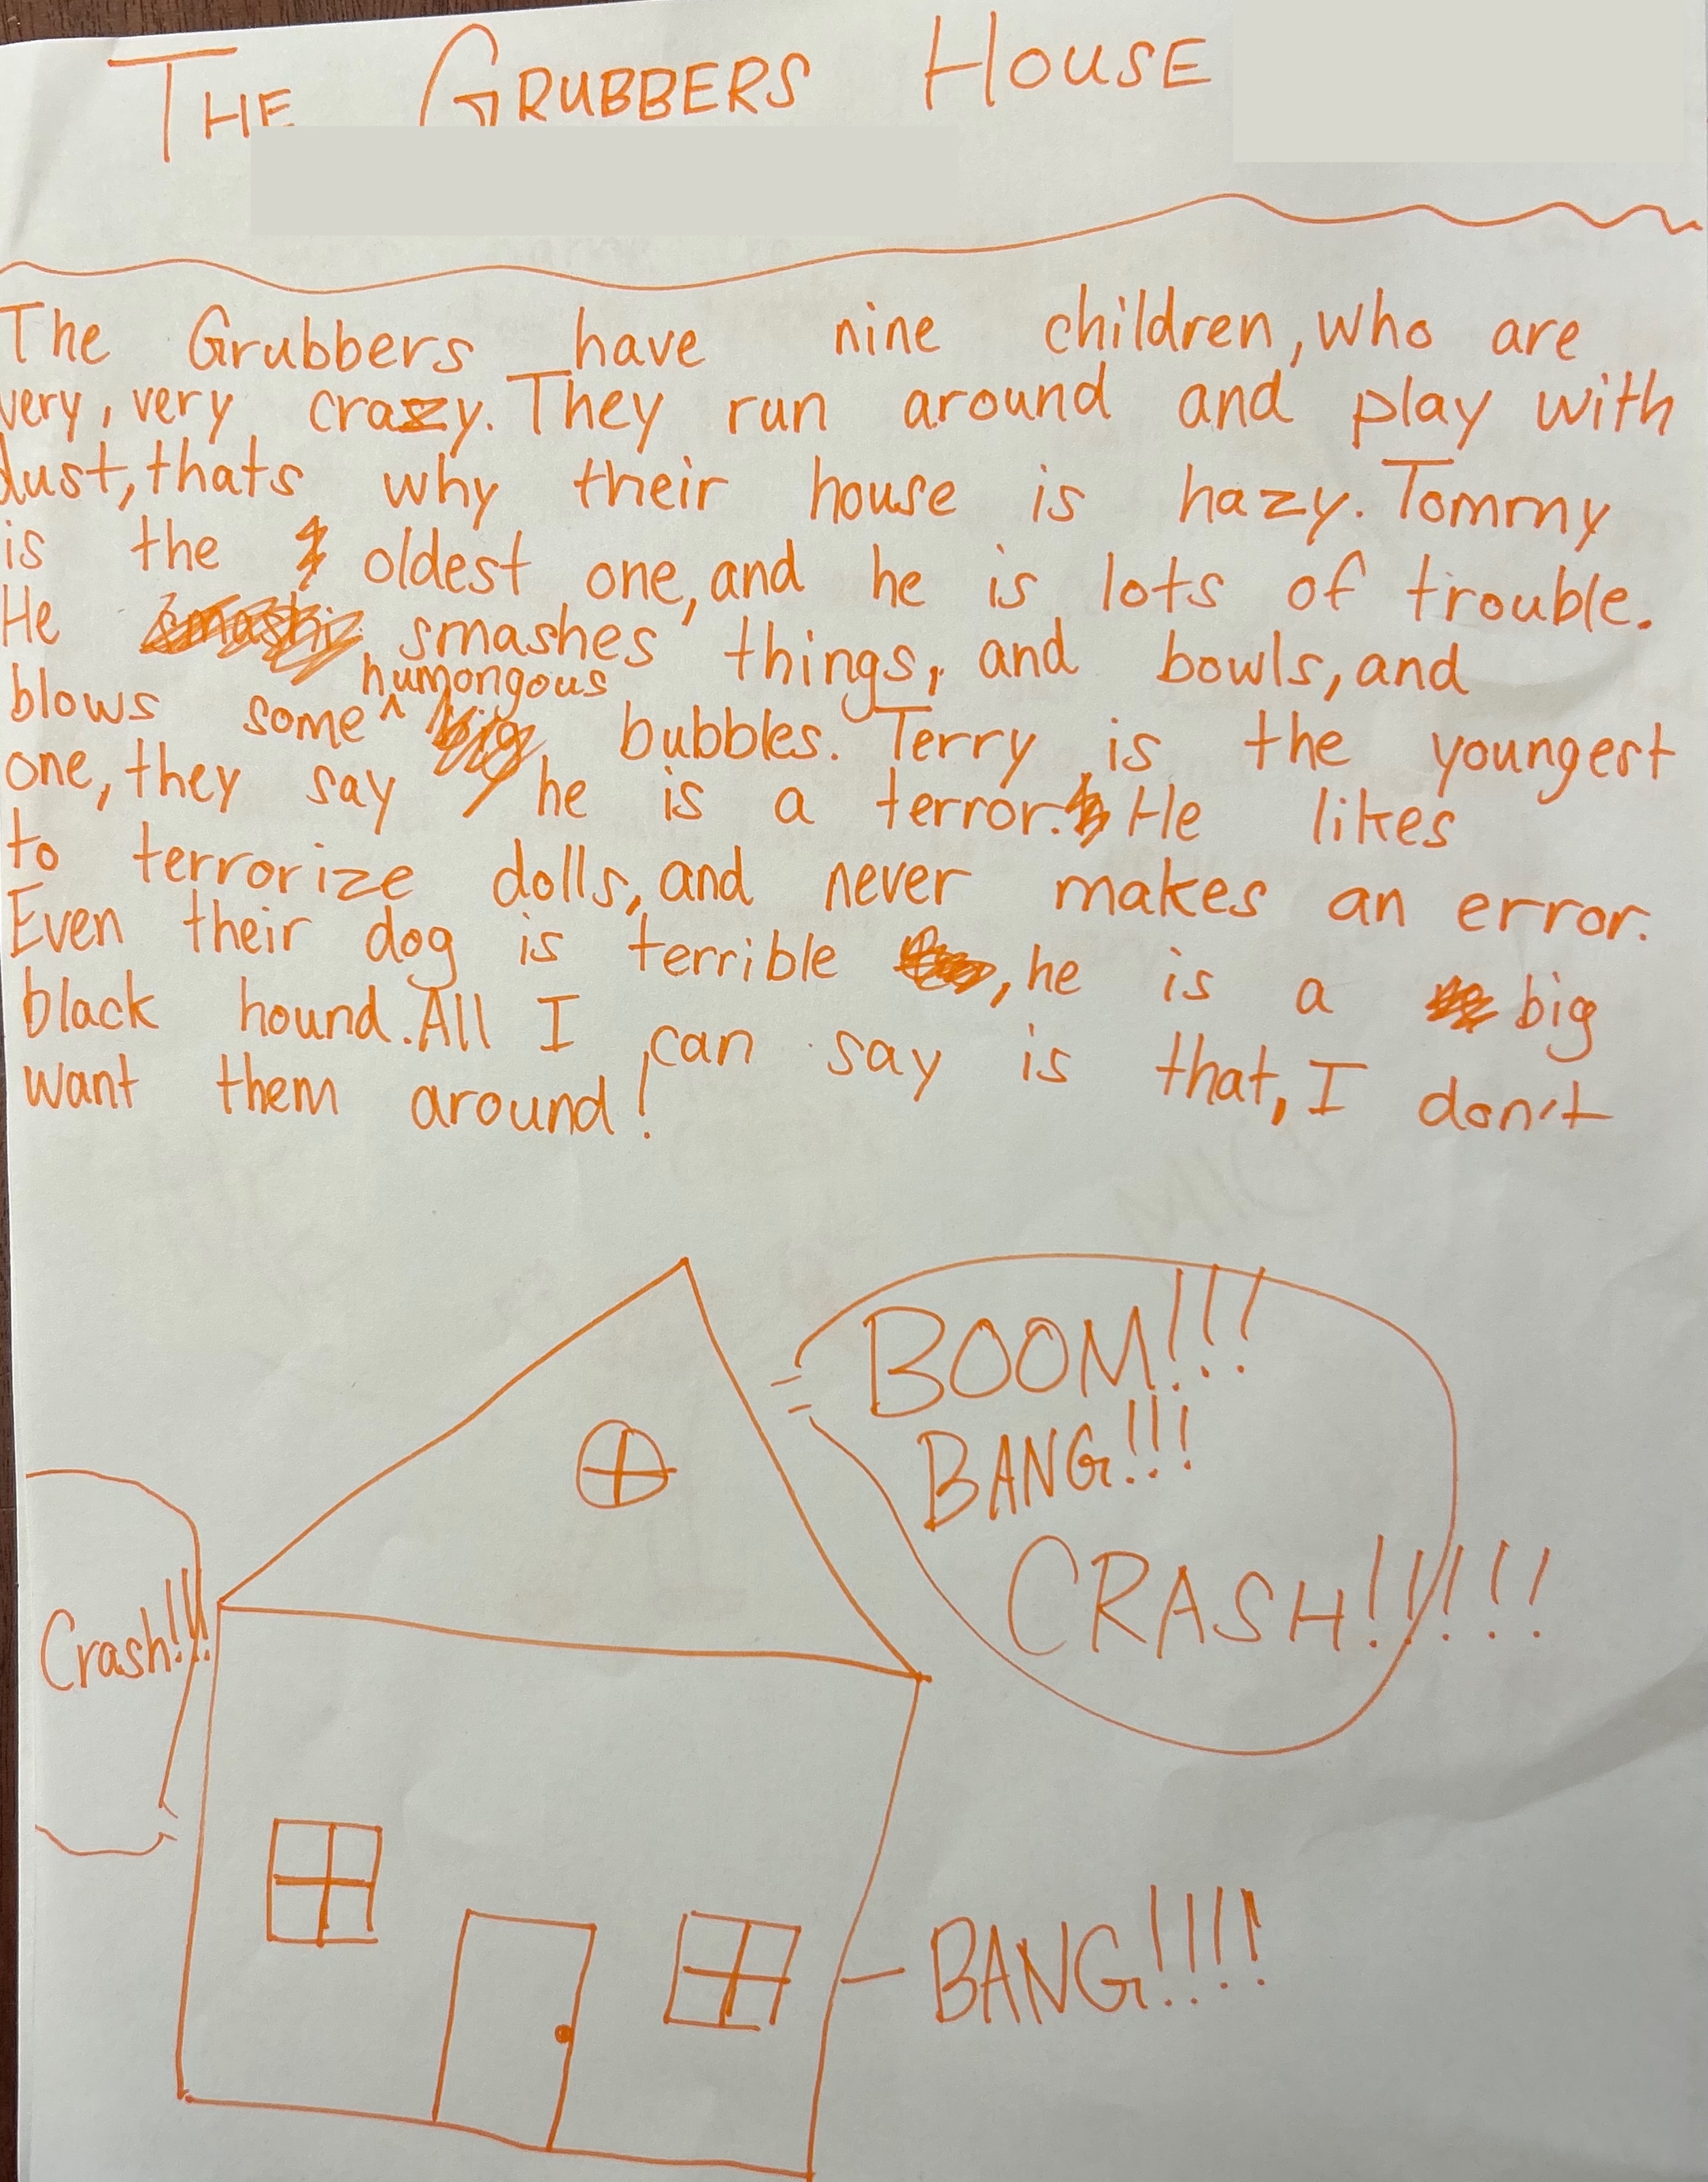 THE GRUBBERS HOUSE
The Grubbers have nine children, who are
very, very crazy. They run around and play with
dust, thats why their house is hazy. Tommy
is the oldest one, and he is lots of trouble.
He smashes things, and bowls, and
blows some humongous bubbles. Terry is the youngest
one, they say he is a terror. He likes
to terrorize dolls, and never makes an error.
Even their dog is terrible, he is a big
black hound. All I can say is that, I don't
want them around!
BOOM!!!
BANG!!!
CRASH!!!!!
Crash!!!
BANG!!!!